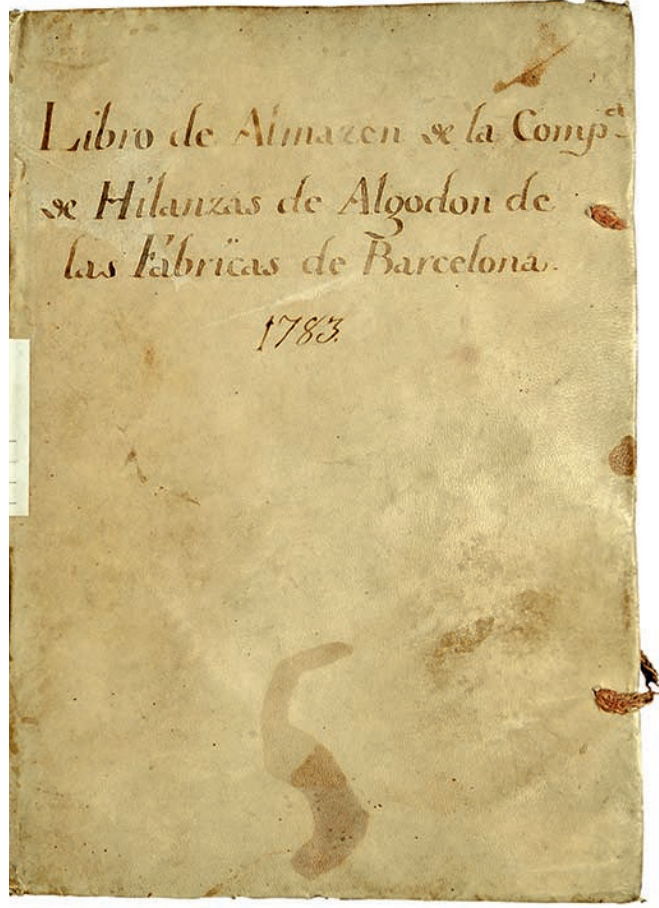 Libro de Almazen de la Comp.ª
de Hilanzas de Algodon de
las Fábricas de Barcelona.
1783.